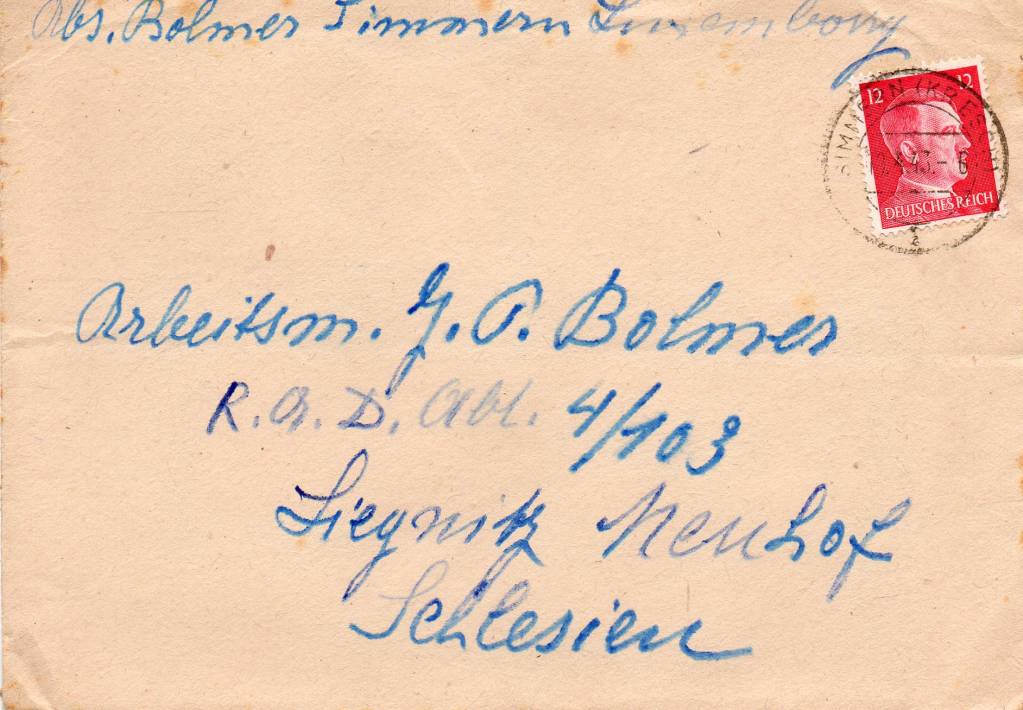 Abs. Bolmer Simmern Luxembourg
12 12
SIMMERN (KR.
43.- 6
DEUTSCHES REICH
Arbeitsm. J. P. Bolmer
R. A. D. Abt. 4/103
Liegnitz Neuhof
Schlesien